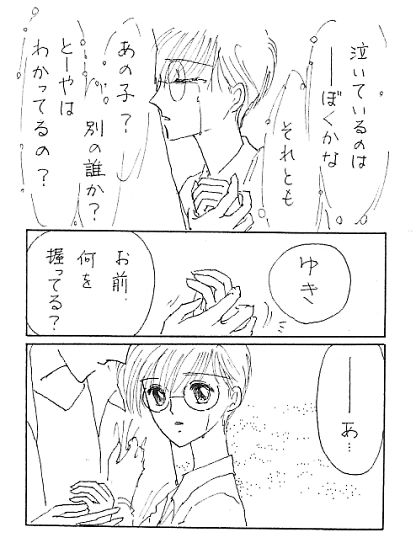 泣いているのは
――ぼくかな
それとも
あの子？
別の誰か？
とーやは
わかってるの？
ゆき
お前
何を
握ってる？
――あ…